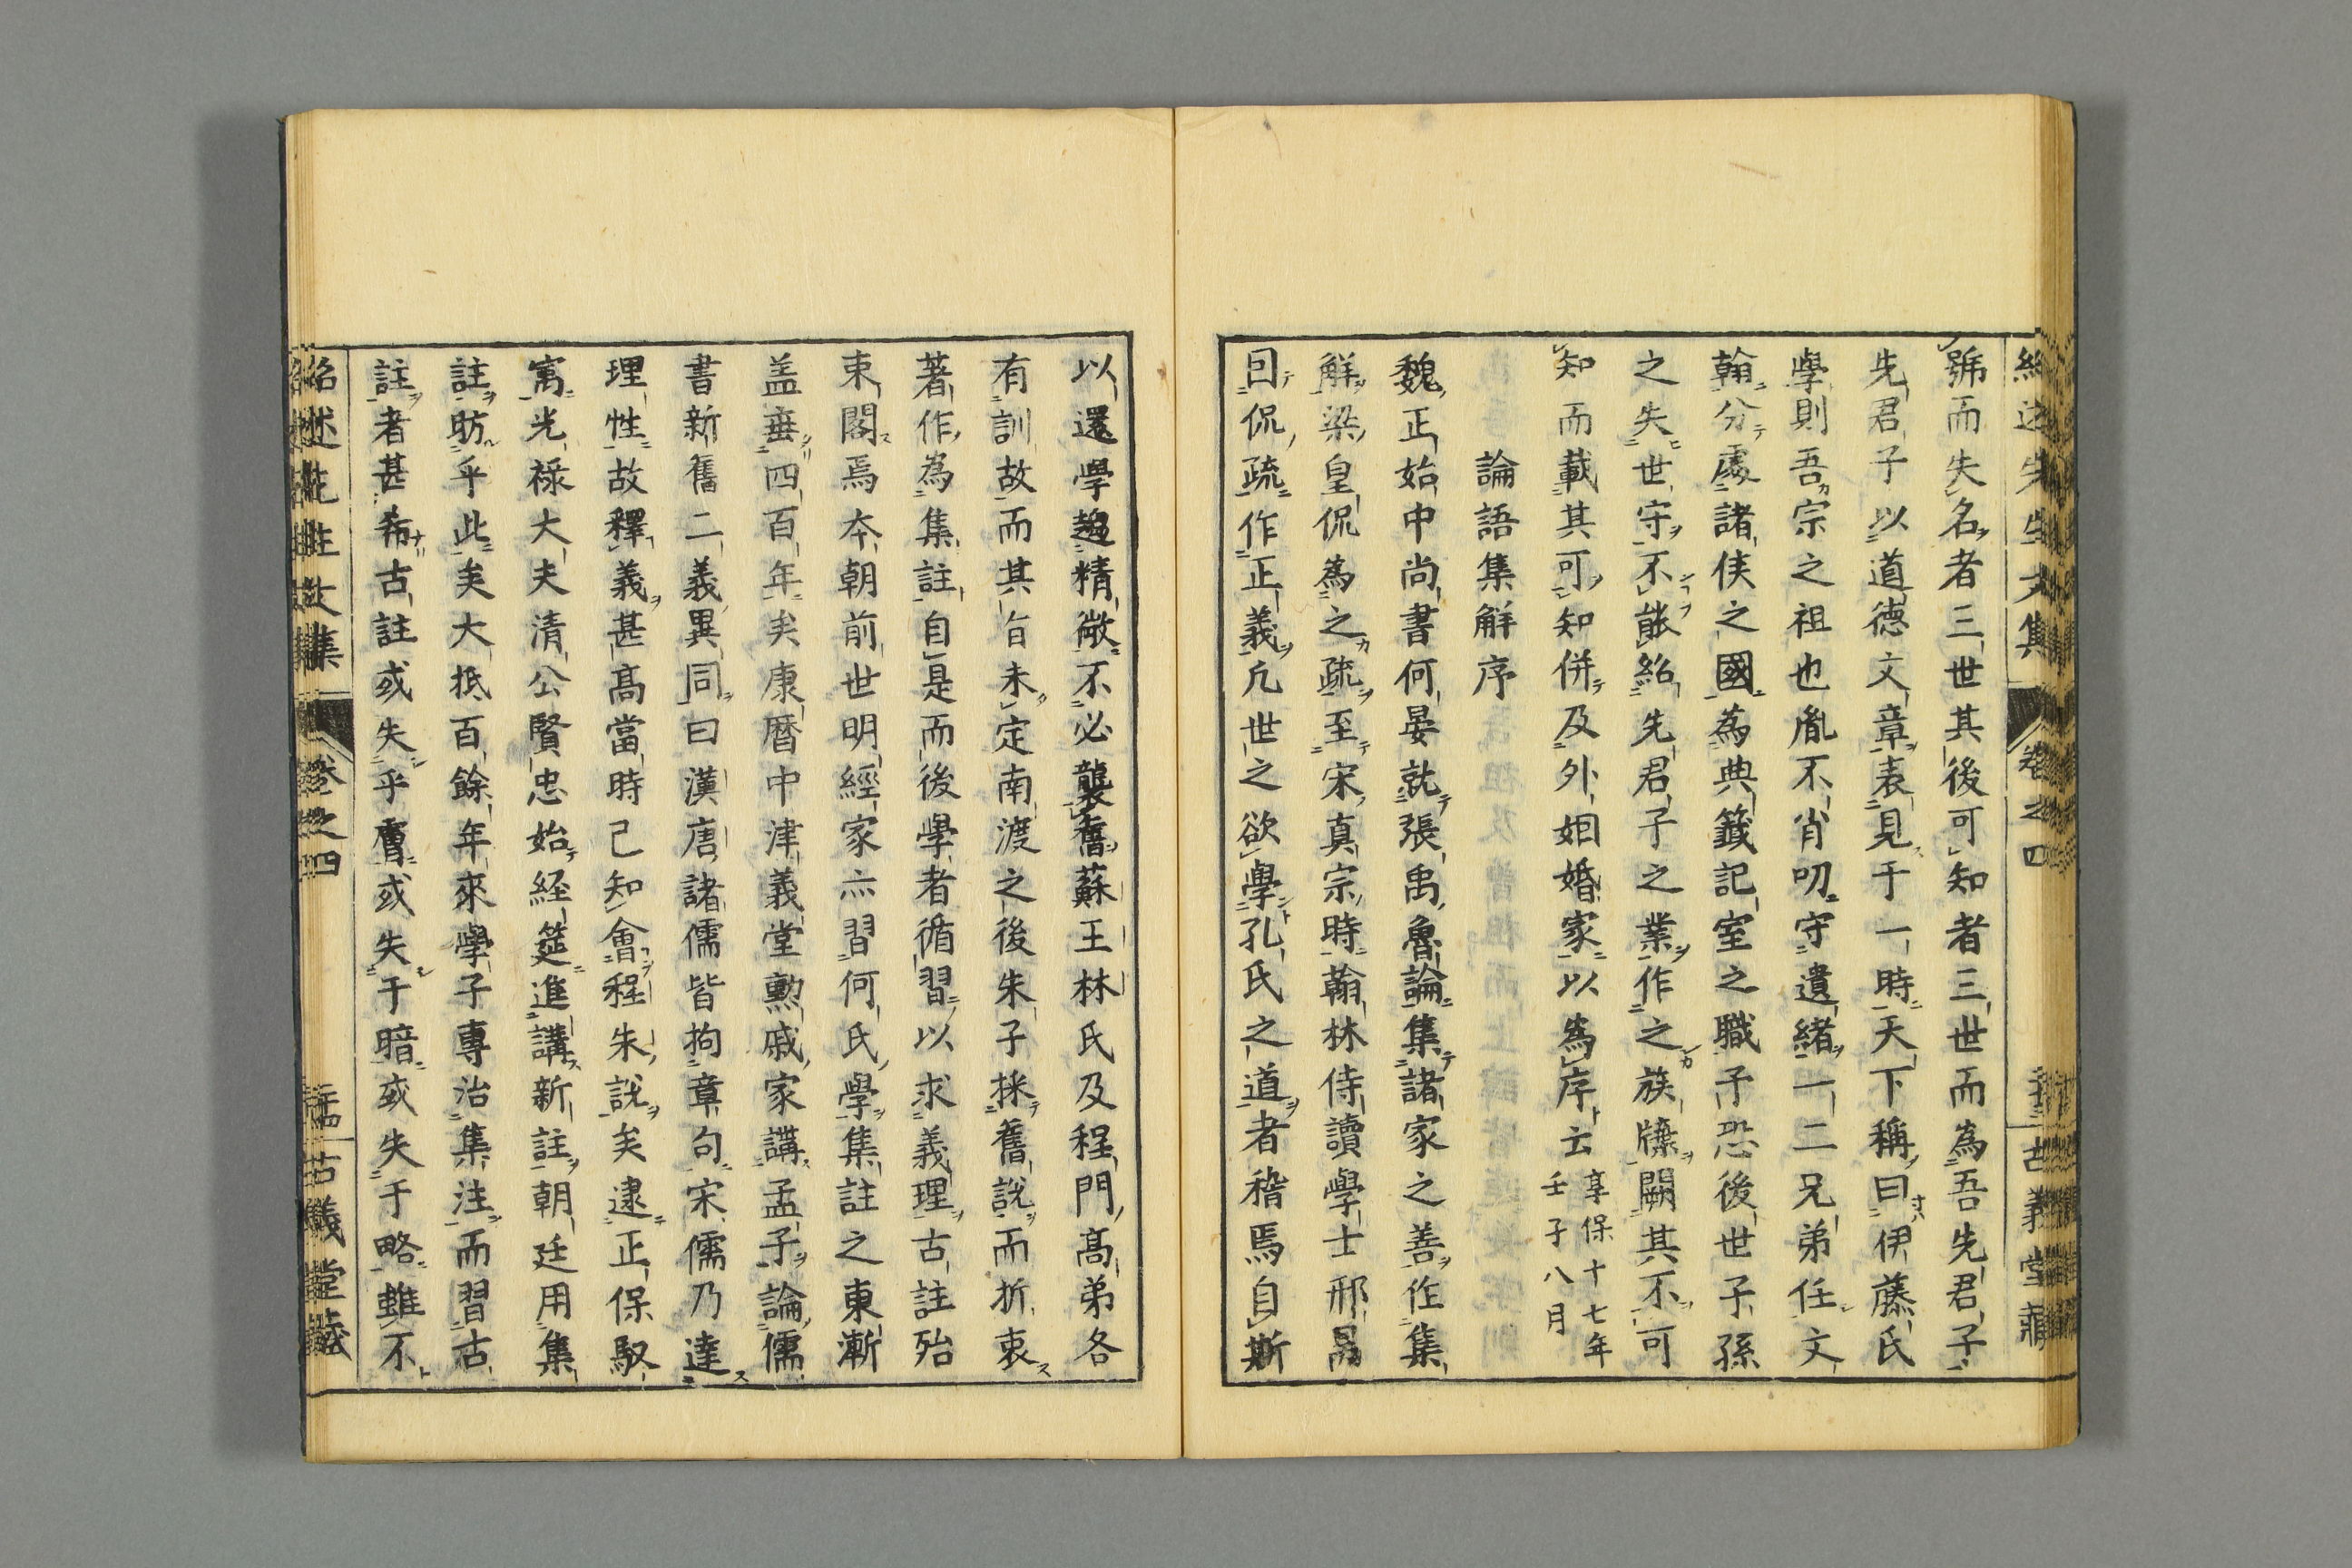 號而失名者三世其後可知者三世而為吾先君子
先君子以道德文章表見于一時天下稱曰伊藤氏
學則吾宗之祖也胤不肖叨守遺緒一二兄弟任文
翰分處諸侯之國為典籤記室之職予恐後世子孫
之失世守不能紹先君子之業作之族牒闕其不可
知而載其可知併及外姻婚家以為序云享保十七年壬子八月
論語集解序
魏正始中尚書何晏就張禹魯論集諸家之善作集
解梁皇侃為之疏至宋真宗時翰林侍讀學士邢昺
因侃疏作正義凡世之欲學孔氏之道者稽焉自斯
以還學趨精微不必襲舊蘇王林氏及程門高弟各
有訓故而其旨未定南渡之後朱子採舊說而折衷
著作為集註自是而後學者循習以求義理古註殆
束閣焉本朝前世明經家亦習何氏學集註之東漸
盖垂四百年矣康曆中津義堂勲戚家講孟子論儒
書新舊二義異同曰漢唐諸儒皆拘章句宋儒乃達
理性故釋義甚高當時已知會程朱說矣逮正保馭
寓光祿大夫清公賢忠始經筵進講新註朝廷用集
註昉乎此矣大抵百餘年來學子專治集注而習古
註者甚希古註或失乎膚或失于暗或失于略雖不
紹述先生文集
卷之四
古義堂藏